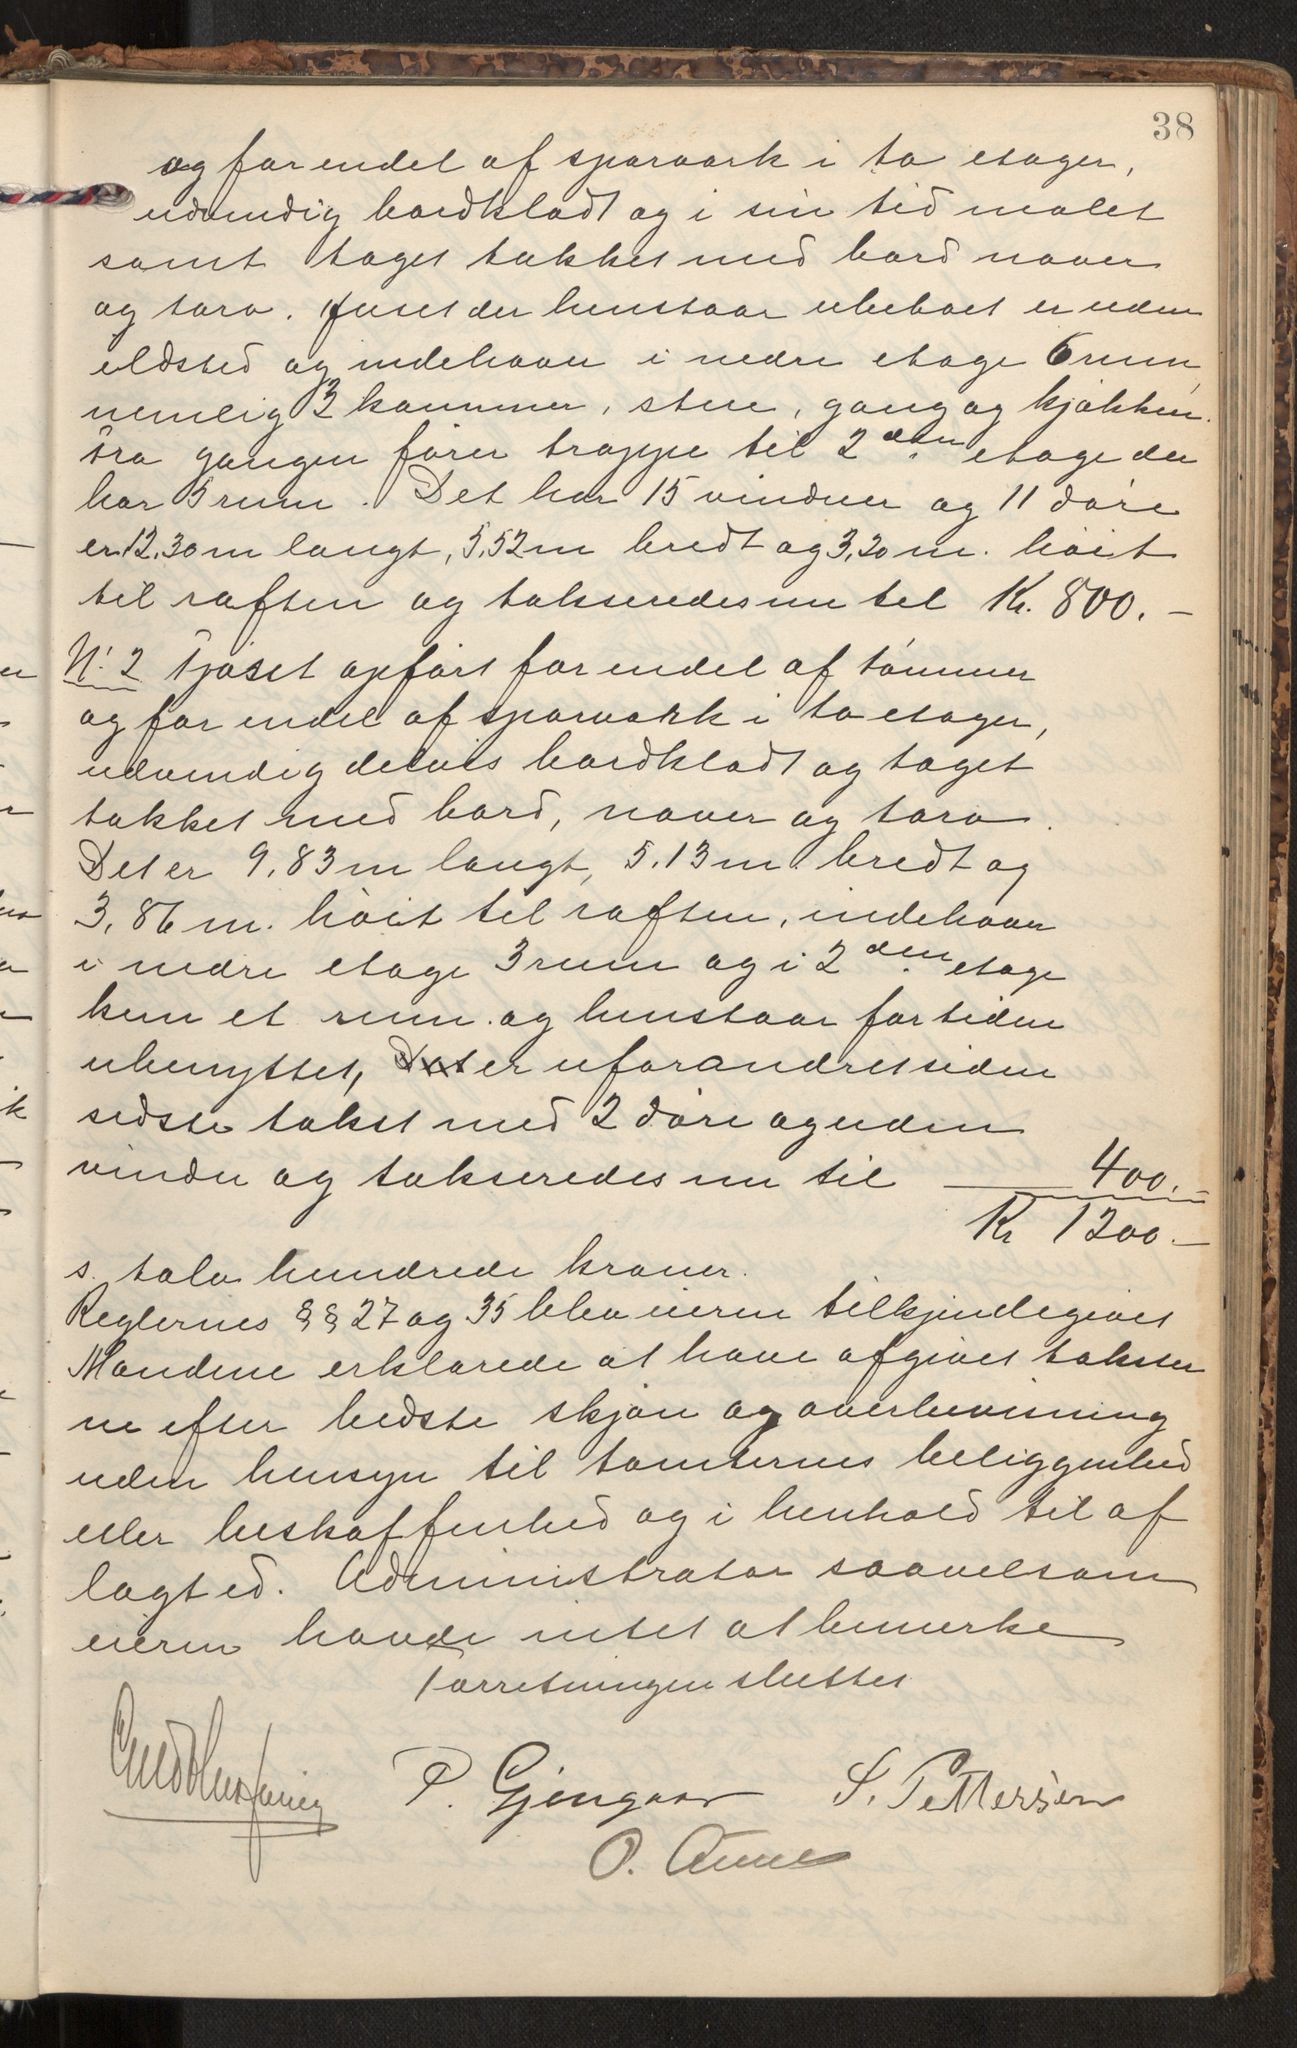 38
og for endel af sparværk i to etager,
udvendig bordklædt og i sin tid malet
samt taget tækket med bord næver
og torv. Huset der henstaar ubeboet er uden
ildsted og indehaver i nedre etage 6 rum,
nemlig 3 kammer, stue, gang og kjøkken.
Fra gangen fører trappe til 2den etage der
har 5 rum. Det har 15 vinduer og 11 døre
er 12,30 m langt, 5,52 m bredt og 3,20 m. høit
til raften og takseredes nu til Kr. 800.-
N: 2 Fjøset opført for endel af tømmer
og for endel af sparværk i to etager,
udvendig delvis bordklædt og taget
tækket med bord, næver og torv.
Det er 9,83 m langt, 5,13 m. bredt og
3,86 m. høit til raften, indehaver
i nedre etage 3 rum og i 2den etage
kun et rum og henstaar for tiden
ubenyttet, Det er uforandret siden
sidste takst med 2 døre og uden
vindu og takseredes nu til 400.-
Kr 1200.-
s. tolv hundrede kroner.
Reglernes §§ 27 og 35 blev eieren tilkjendegivet
Mændene erklærede at have afgivet takster
ne efter bedste skjøn og overbevisning
uden hensyn til tomternes beliggenhed
eller beskaffenhed og i henhold til af
lagt ed. Administrator saavelsom
eieren havde intet at bemerke
Forretningen sluttet
P. Gjengaar S. Pettersen
O. Aune